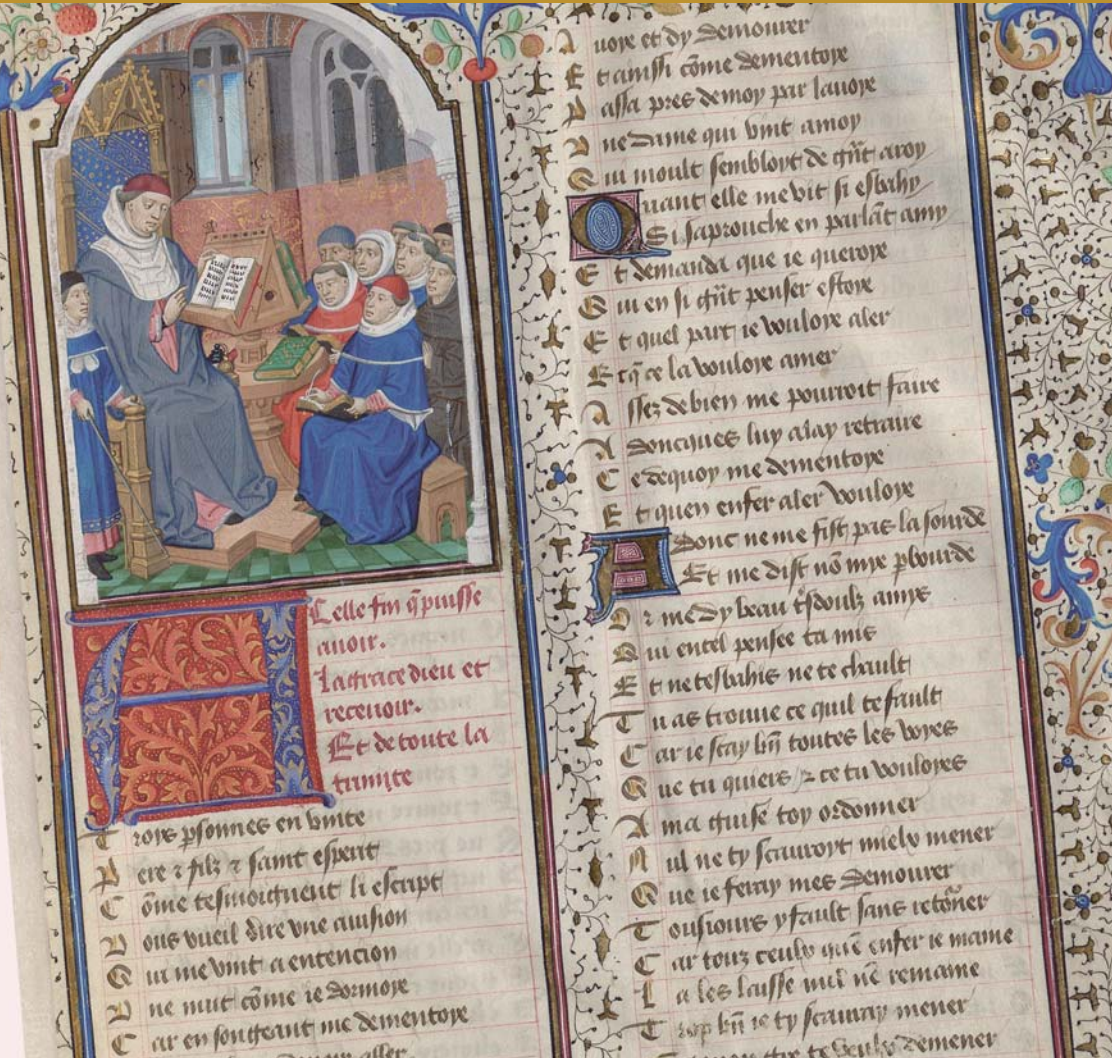 A celle fin q̄ puisse
auoir.
La grace dieu et
receuoir.
Et de toute la
trinite
Troys psonnes en vnite
Pere ⁊ filz ⁊ saint esperit
Cōme tesmoignent li escript
Vous vueil dire vne auision
Qui me vint a entencion
Vne nuit cōme ie dormoye
Car en songeant me dementoye
aller
uoye et dy demourer
Et ainssi cōme dementoye
Passa pres de moy par la uoye
Vne dame qui vint a moy
Qui moult sembloyt de grāt aroy
Quant elle me vit si esbahy
Si saprouche en parlāt amy
Et demanda que ie queroye
Qui en si grāt penser estoye
Et quel part ie vouloye aler
Et q̄ ce la vouloye amer
Assez de bien me pourroit faire
Adoncques luy alay retraire
Ce dequoy me dementoye
Et quen enfer aler vouloye
Adonc ne me fist pas la sourde
Et me dist nō mye p bourde
Or me dy beau tsdoulz amys
Qui en tel pensee ta mis
Et ne tesbahis ne te chault
Tu as trouue ce quil te fault
Car ie scay bn̄ toutes les voyes
Que tu quiers ⁊ ce tu vouloyes
A ma guise toy ordonner
Nul ne ty scauroyt mielx mener
Que ie feray mes demourer
Tousiours y fault sans retōner
Car touz ceulx quē enfer ie maine
La les laisse nul ne remaine
Trop bn̄ ie ty scauray mener
te veulx demener